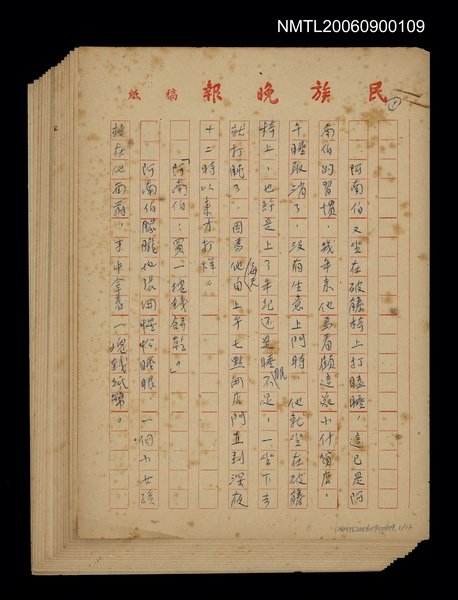 NMTL20060900109
民族晚報 稿紙
1
阿南伯又坐在破籐椅上打瞌睡，這已是阿
南伯的習慣，幾年來他為看顧這家小什貨店，
午睡取消了，沒有生意上門時，他就坐在破籐
椅上，也許是上了年紀還是睡眠不足，一坐下去
就打盹了，因為他每天自上午七點開店門直到深夜
十二時以來才打烊。
「阿南伯，買一塊錢餅乾。」
阿南伯朦朧地張開惺忪睡眼，一個小女孩
站在他面前，手中拿著一塊錢紙幣。
NMTL20060900109, 1/16